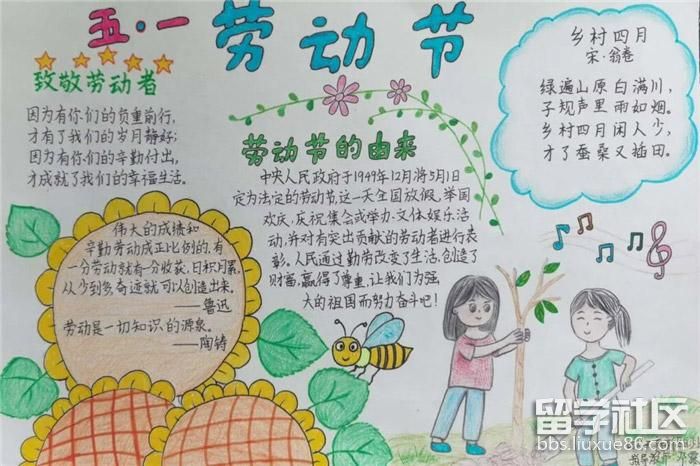 五·一劳动节
致敬劳动者
因为有你们的负重前行,
才有了我们的岁月静好;
因为有你们的辛勤付出,
才成就了我们的幸福生活。
伟大的成绩和
辛勤劳动成正比例的,有
一分劳动就有一分收获,日积月累,
从少到多,奇迹就可以创造出来。
——鲁迅
劳动是一切知识的源泉。
——陶铸
劳动节的由来
中央人民政府于1949年12月将5月1日
定为法定的劳动节,这一天全国放假,举国
欢庆,庆祝集会或举办文体娱乐活
动,并对有突出贡献的劳动者进行表
彰。人民通过勤劳改变了生活,创造了
财富,赢得了尊重,让我们为强
大的祖国而努力奋斗吧!
乡村四月
宋·翁卷
绿遍山原白满川,
子规声里雨如烟。
乡村四月闲人少,
才了蚕桑又插田。
留学社区
bbs.liuxue86.com